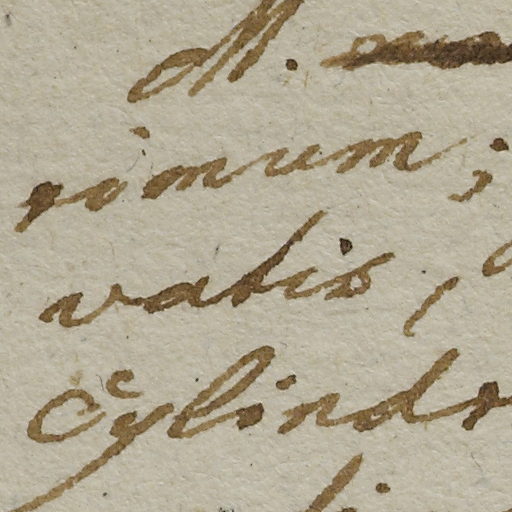 M.
rimum;
vatis,
Cylindr